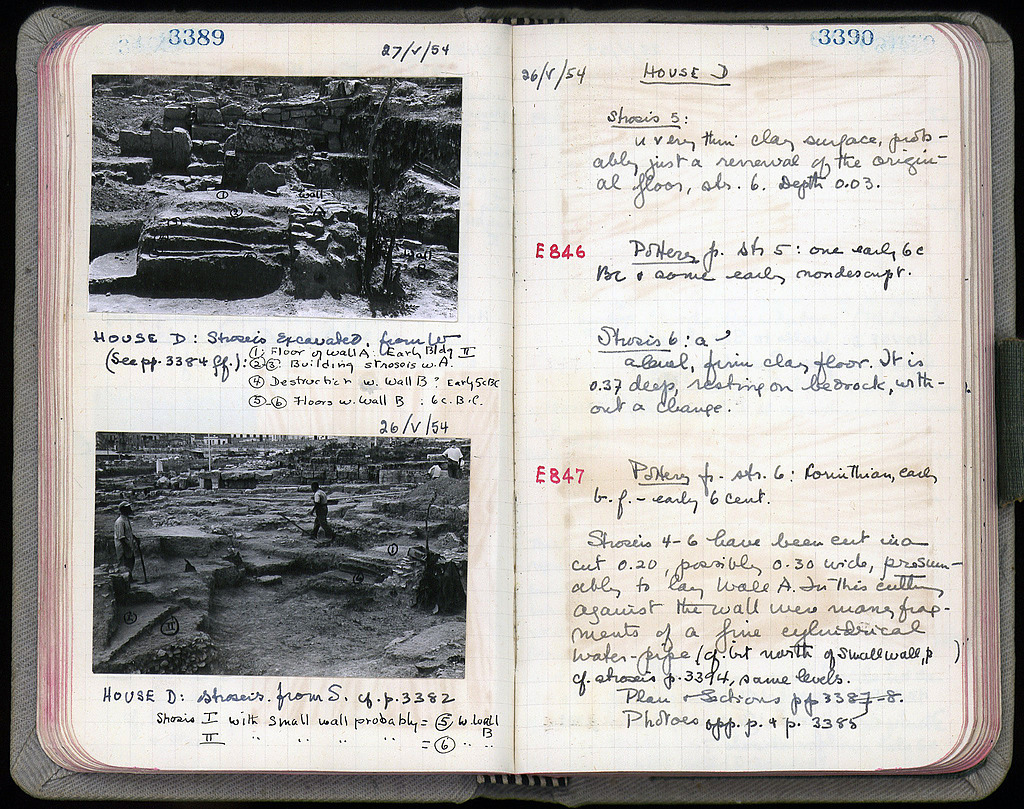 3389
27/V/54
①
②
Wall
A
Wall
B
HOUSE D: Stroseis Excavated, from W
(See pp. 3384 ff.):
①: Floor of Wall A: Early Bldg II
②-③: Building stroseis w. A.
④ Destruction w. Wall B? Early 5c BC
⑤-⑥ Floors w. Wall B : 6c. B.C.
26/V/54
①
II
HOUSE D: stroseis. from S. cf. p. 3382
Strosis I with small wall probably = ⑤ w. wall B
II " " " " = ⑥ " "
3390
26/V/54 HOUSE D
Strosis 5:
a very thin clay surface, prob-
ably just a renewal of the origin-
al floor, str. 6. Depth 0.03.
E846 Pottery fr. str 5: one early 6c
BC & some early nondescript.
Strosis 6: a
level, firm clay floor. It is
0.37 deep, resting on bedrock, with-
out a change.
E847 Pottery fr. str. 6: Corinthian, early
b.f. - early 6 cent.
Stroseis 4-6 have been cut in a
cut 0.20, possibly 0.30 wide, presum-
ably to lay Wall A. In this cutting
against the wall were many frag-
ments of a fine cylindrical
water-pipe (cf. bit north of small wall, p )
cf. stroseis p. 3394, same levels.
Plan & Sections pp 3387-8.
Photoes opp. p. & p. 3385